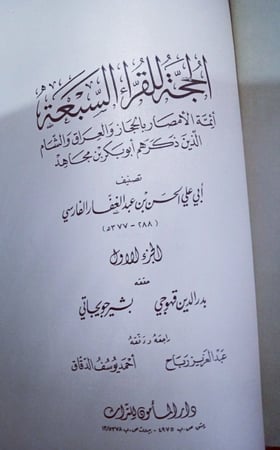 الحجة للقراء السبعة
أئمة الأمصار بالحجاز والعراق والشام
الذين ذكرهم أبو بكر بن مجاهد
تصنيف
أبي علي الحسن بن عبد الغفار الفارسي
(٢٨٨ - ٣٧٧ هـ)
الجزء الأول
حققه
بدر الدين قهوجي بشير جويجاتي
راجعه ودققه
عبد العزيز رباح أحمد يوسف الدقاق
دار المأمون للتراث
ص.ب ٤٩٧١ - بيروت ص.ب